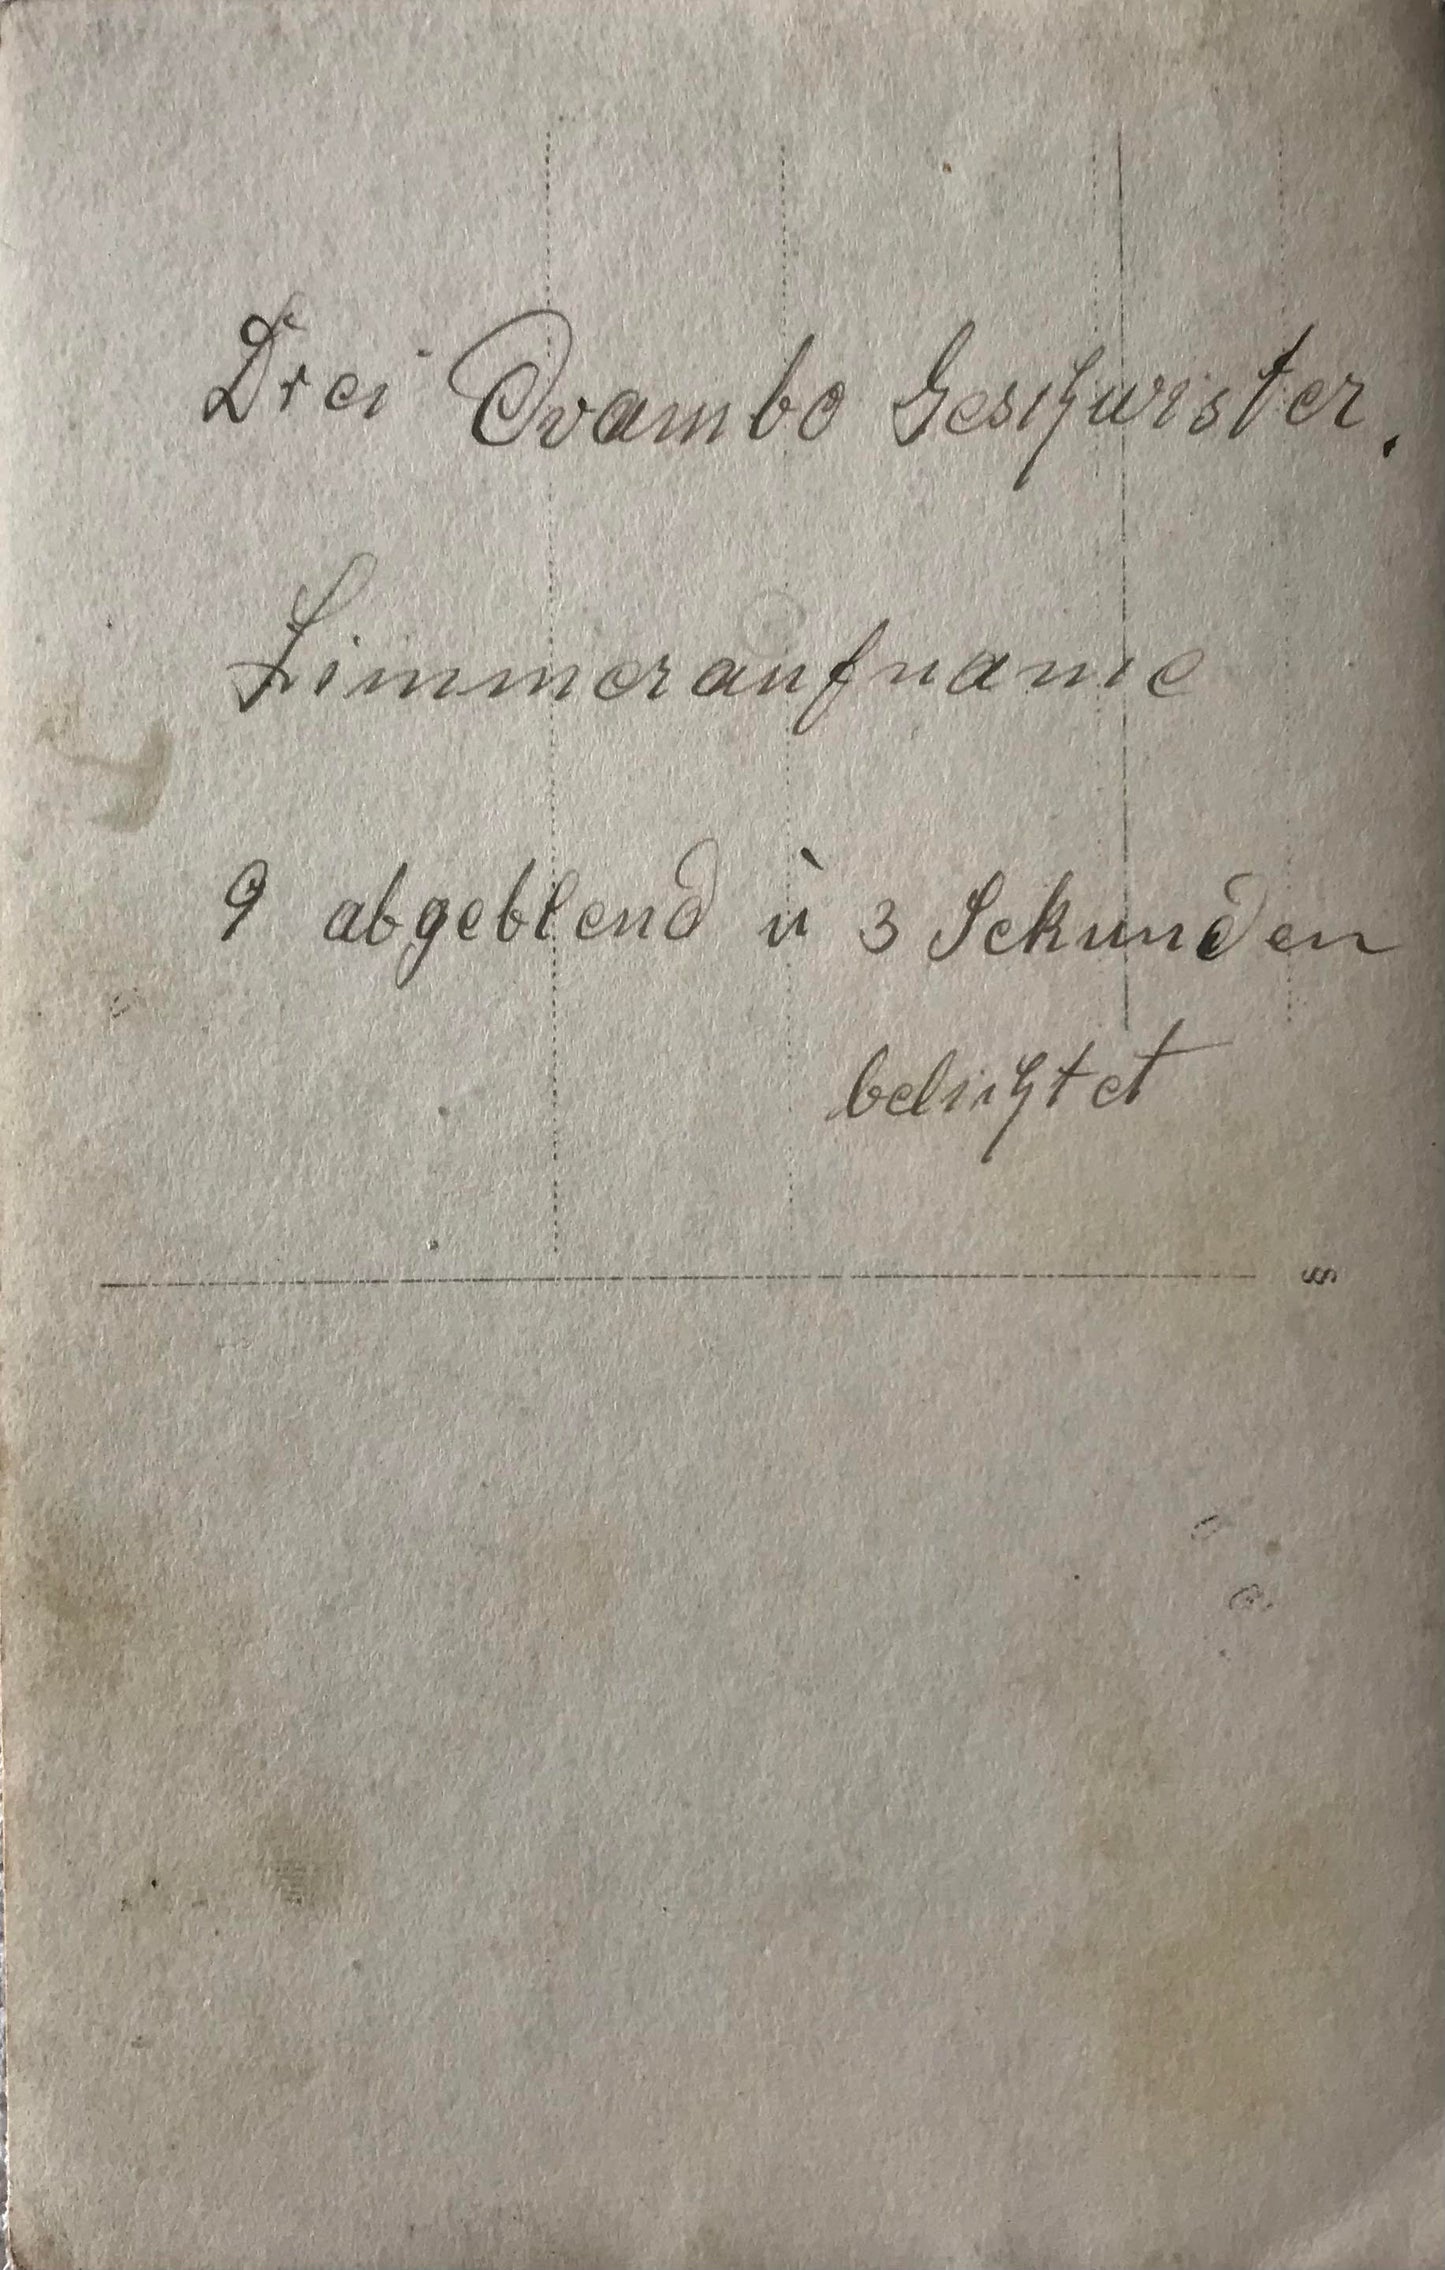 Drei Ovambo Geschwister.
Zimmeraufname
9 abgeblend ù 3 Sekunden
belichtet